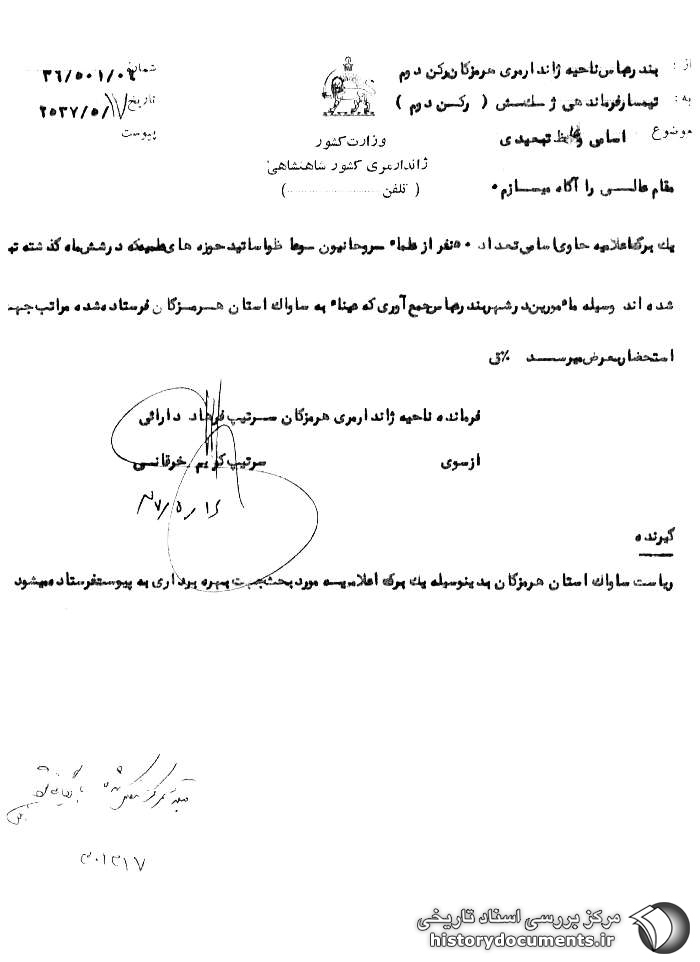 از: بندرعباس ناحیه ژاندارمری هرمزگان رکن دوم
شماره ۳۶/۵۰۱/۰۶
به: تیمسار فرماندهی ژ.ک.ش (رکن دوم)
تاریخ ۲۵۳۷/۵/۱۷
موضوع: اسامی وعاظ تبعیدی
پیوست
وزارت کشور
ژاندارمری کشور شاهنشاهی
(تلفن ....................)
مقام عالی را آگاه میسازم.
یک برگ اعلامیه حاوی اسامی تعداد ۵۰ نفر از علماء روحانیون وعاظ و اساتید حوزه های علمیه که در شش ماه گذشته
شده اند وسیله مأمورین در شهر بندرعباس جمع آوری که عیناً به ساواک استان هرمزگان فرستاده شده مراتب جهت
استحضار بعرض میرسد
فرمانده ناحیه ژاندارمری هرمزگان سرتیپ فرهاد دارائی
از سوی سرتیپ کریم
۳۷/۵/۱۶
گیرنده
ریاست ساواک استان هرمزگان بدینوسیله یک برگ اعلامیه مورد بحث جهت بهره برداری به پیوست فرستاده میشود
مرکز بررسی اسناد تاریخی
historydocuments.ir